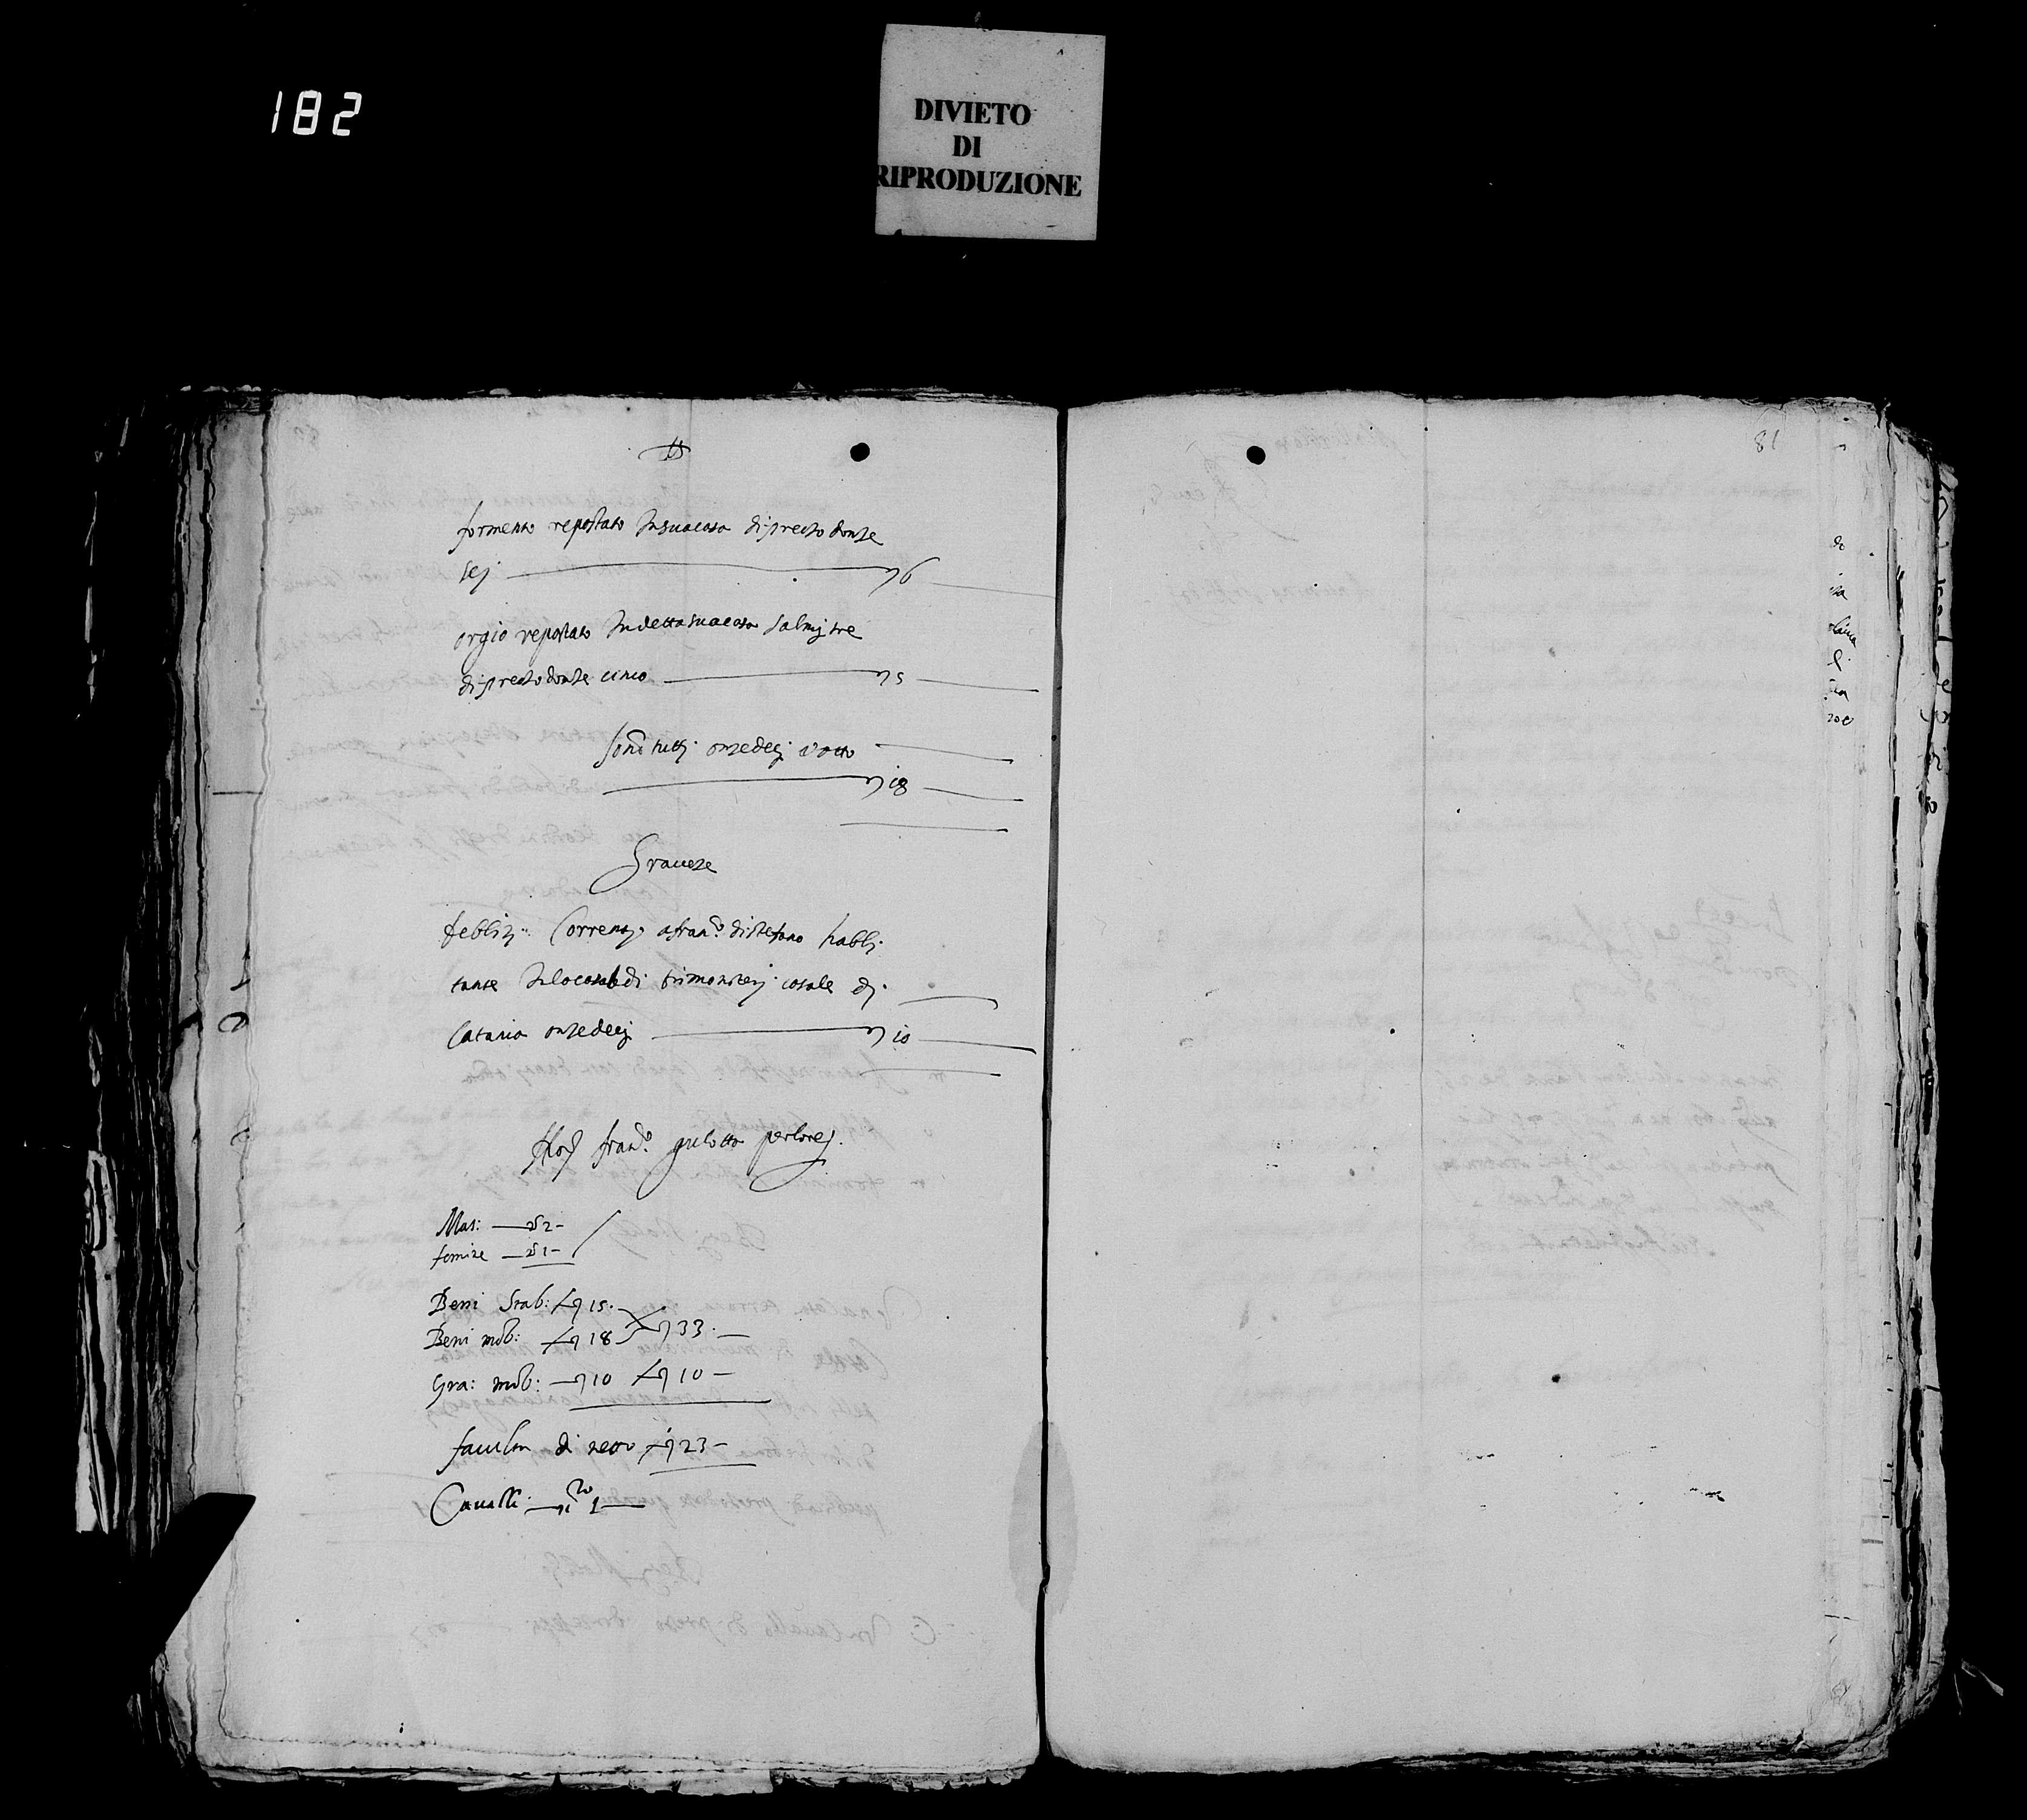 182
DIVIETO
DI
RIPRODUZIONE
81
formento repostato In sua casa di prezo d'onze
sej 6
orgio repostato In detta sua casa salmj tre
di prezo d'onze cinco 5
sonno tuttj onze decj d'otto
18
Graveze
debbitj Correntj a fran.co di stefano habbi
tante In lo casale di trimonsterj casale dj
Catania onze decj 10
fran.co gulotta
Mas: 2
femine 1
Beni Stab: 15
Beni mob: 18 33
Gra: mob: 10 10
facultà di netto 23
Cavalli: n.ro 1